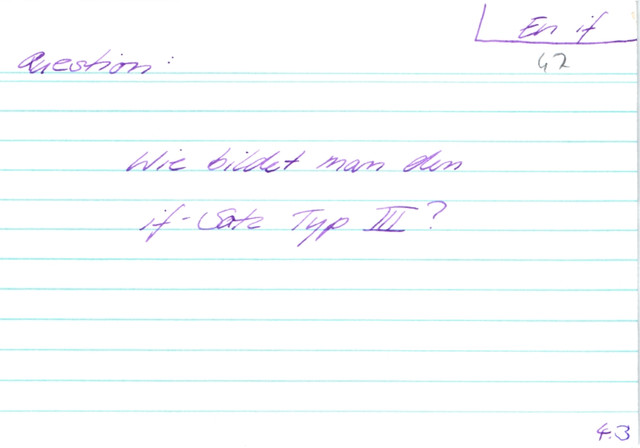 En if
42
Question:
Wie bildet man den
if-Satz Typ III?
4.3